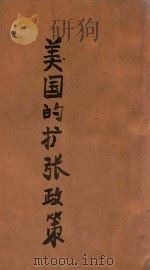 美国的扩张政策
www.mtoou.info